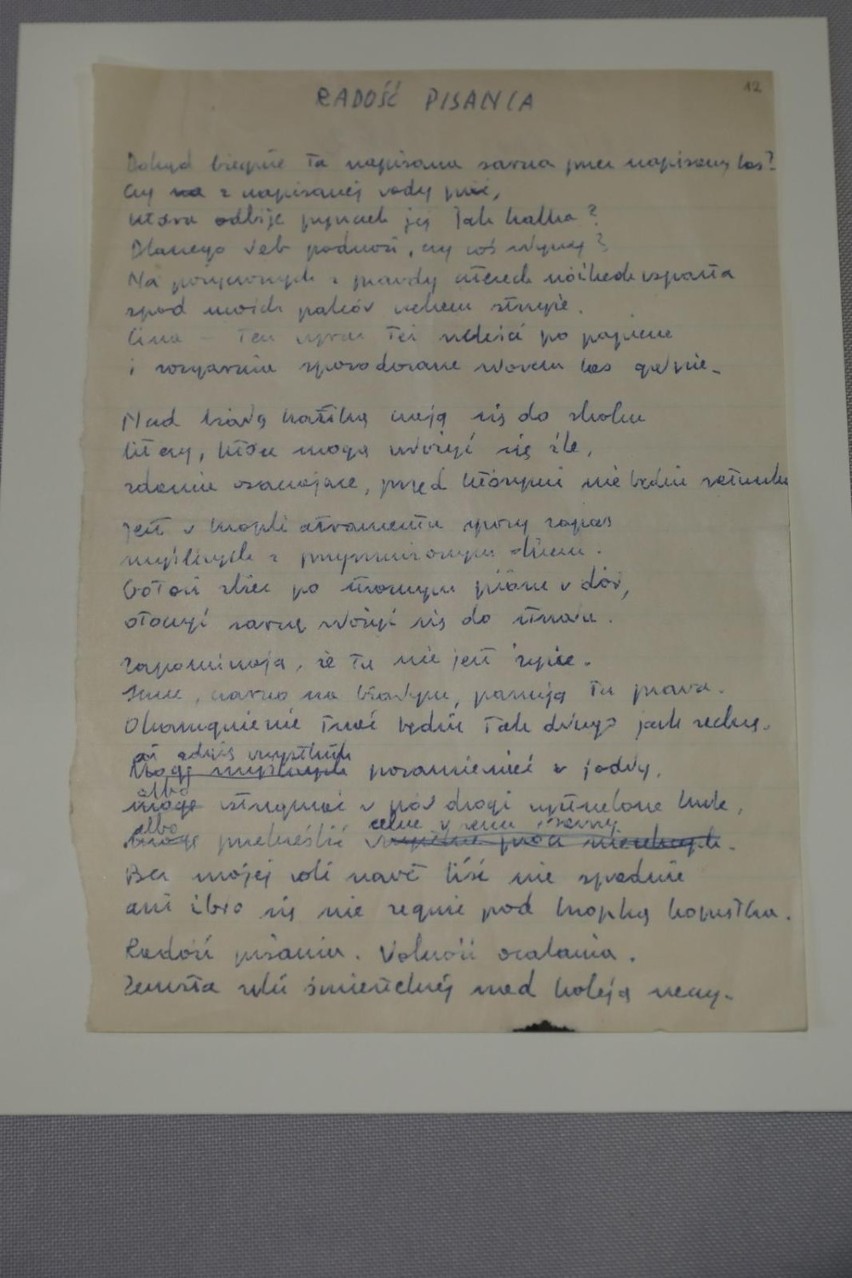 12
RADOŚĆ PISANIA
Dokąd biegnie ta napisana sarna przez napisany las?
Czy z napisanej wody pić,
która odbije pyszczek jej jak kalka?
Dlaczego łeb podnosi, czy coś słyszy?
Na pożyczonych z prawdy czterech nóżkach wsparta
spod moich palców uchem strzyże.
Cisza – ten wyraz też szeleści po papierze
i rozgarnia spowodowane słowem las gałęzie.
Nad białą kartką czają się do skoku
litery, które mogą ułożyć się źle,
zdania osaczające, przed którymi nie będzie ratunku
Jest w kropli atramentu spory zapas
myśliwych z przymrużonym okiem.
Gotowi zbiec po stromym piórze w dół,
otoczyć sarnę, złożyć się do strzału.
Zapominają, że tu nie jest życie.
Inne, czarno na białym, panują tu prawa.
Okamgnienie trwać będzie tak długo jak zechcę.
wszystkich
Mogę myśliwych pozamieniać w jodły,
albo
mogę wstrzymać w pół drogi wystrzelone kule,
albo celne w serce sarny
mogę przekreślić
Bez mojej woli nawet liść nie spadnie
ani źdźbło się nie zegnie pod kropką kopytka.
Radość pisania. Wolność ocalania.
Zemsta ręki śmiertelnej nad koleją rzeczy.